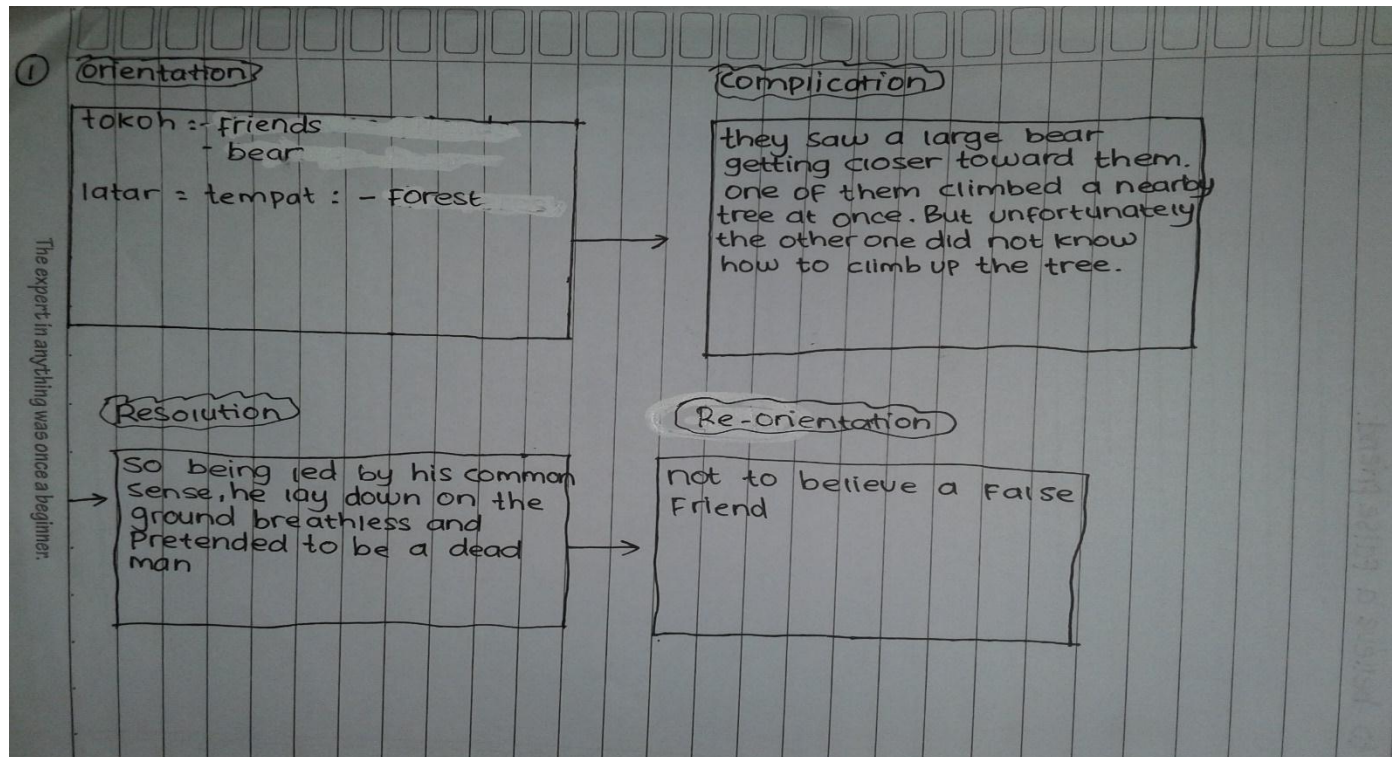 ①
Orientation
tokoh :- Friends
- bear
latar = tempat : - Forest
Complication
they saw a large bear
getting closer toward them.
one of them climbed a nearby
tree at once. But unfortunately
the other one did not know
how to climb up the tree.
Resolution
so being led by his common
sense, he lay down on the
ground breathless and
Pretended to be a dead
man
Re-orientation
not to believe a False
Friend
The expert in anything was once a beginner.